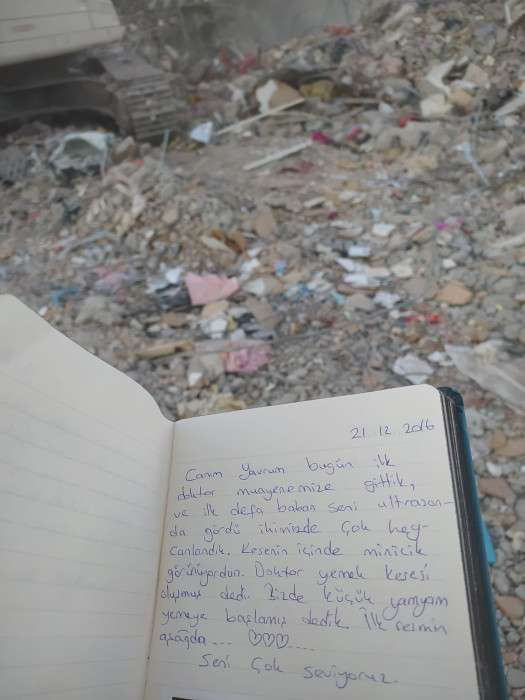 21.12.2016
Canım Yavrum bugün ilk
doktor muayenemize gittik,
ve ilk defa baban seni ultrason-
da gördü ikimizde çok hey-
canlandık. Kesenin içinde minicik
görünüyordun. Doktor yemek kesesi
oluşmuş dedi. Bizde küçük yamyam
yemeye başlamış dedik. İlk resmin
aşağıda .... ♡♡♡ ......
Seni çok seviyoruz.